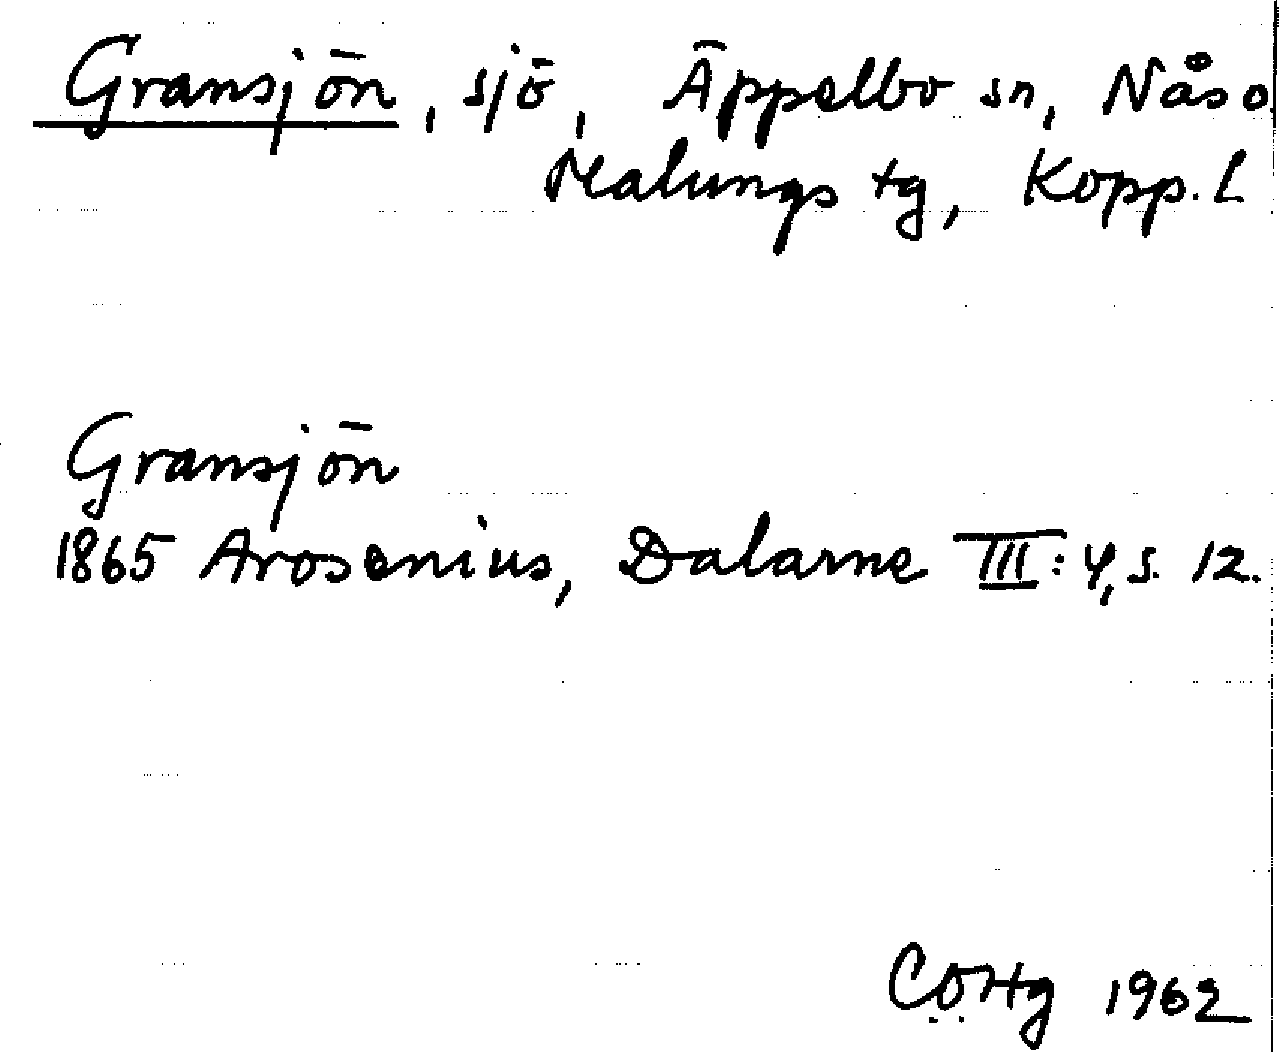 Gransjön, sjö, Äppelbo sn, Nås o
Malungs tg, Kopp. L
Gransjön
1865 Arosenius, Dalarne III: 4, s. 12.
COHg 1962